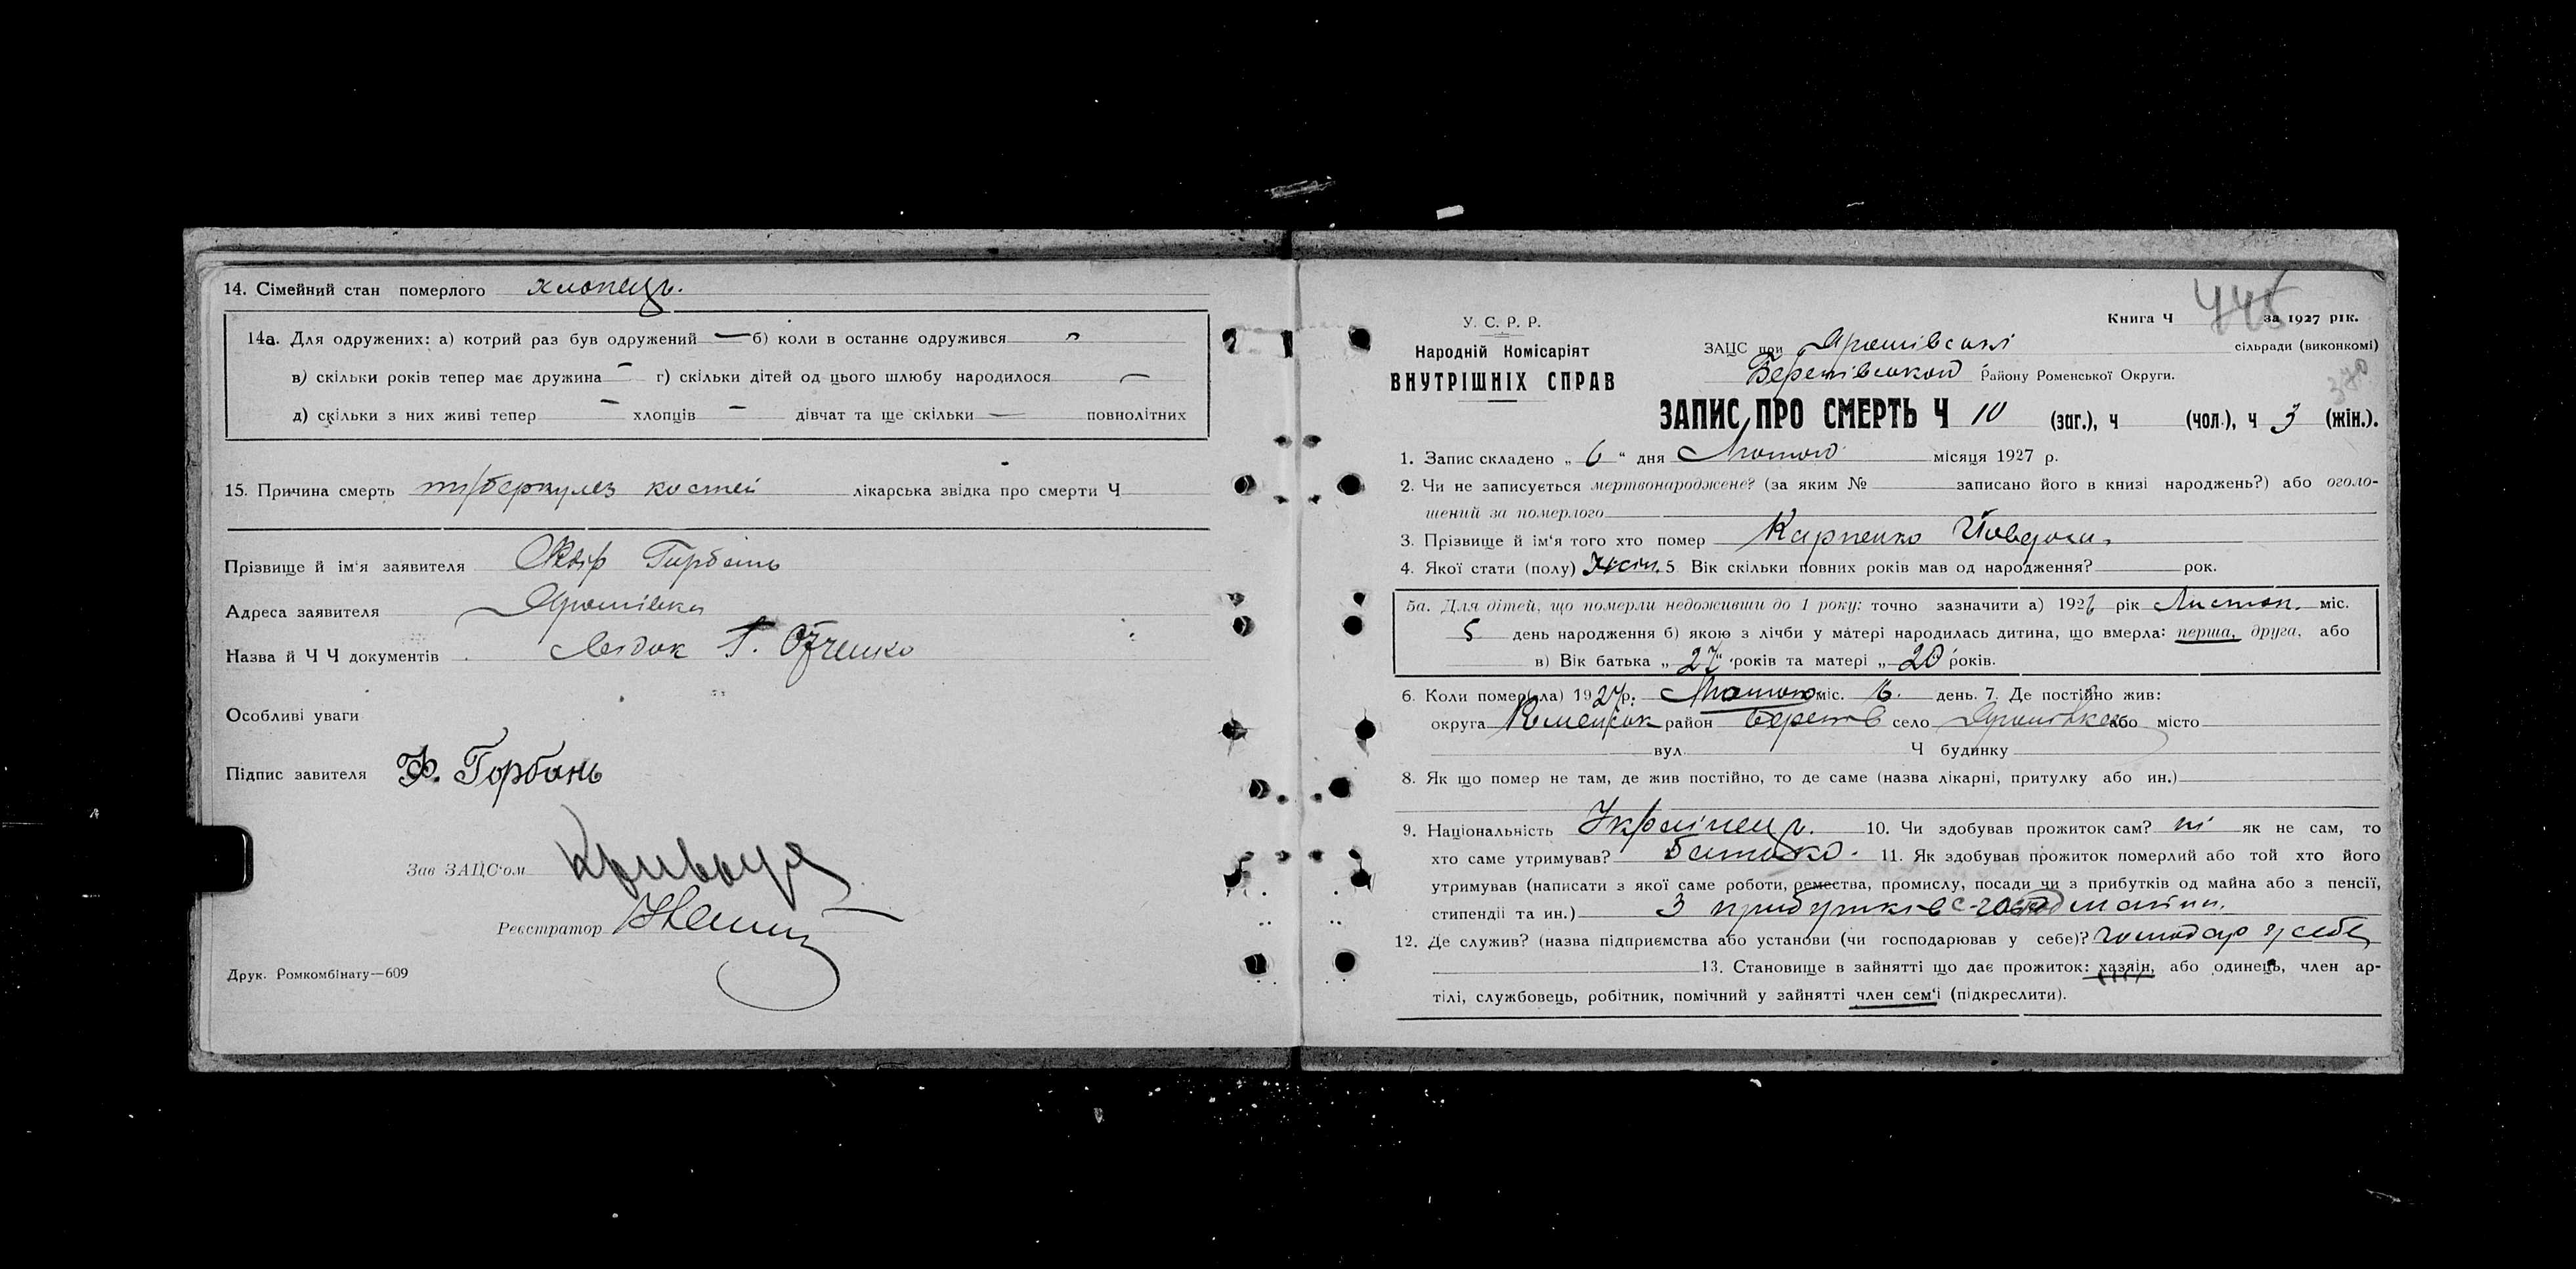 14. Сімейний стан померлого хлопець.
14а. Для одружених: а) котрий раз був одружений — б) коли в останнє одружився —
в) скільки років тепер має дружина — г) скільки дітей од цього шлюбу народилося —
д) скільки з них живі тепер — хлопців — дівчат та ще скільки — повнолітних
15. Причина смерть туберкулез костей лікарська звідка про смерти Ч
Прізвище й ім'я заявителя Горбань
Адреса заявителя Ярошівка
Назва й Ч Ч документів
Особливі уваги
Підпис завителя Ф. Горбань
Зав ЗАЦС'ом
Реєстратор
Друк. Ромкомбінату—609
445
Книга Ч за 1927 рік.
У. С. Р. Р.
Народній Комісаріят
ВНУТРІШНІХ СПРАВ
ЗАЦС при Ярошівські сільради (виконкомі)
Району Роменської Округи.
370
ЗАПИС ПРО СМЕРТЬ Ч 10 (заг.), ч (чол.), ч 3 (жін.).
1. Запис складено „ 6 " дня Лютого місяця 1927 р.
2. Чи не записується мертвонароджене? (за яким № записано його в книзі народжень?) або оголо-
шений за померлого
3. Прізвище й ім'я того хто помер Карпенко Йовдоха.
4. Якої стати (полу) жін. 5 Вік скільки повних років мав од народження? рок.
5а. Для дітей, що померли недоживши до 1 року: точно зазначити а) 1926 рік Листоп. міс.
5 день народження б) якою з лічби у матері народилась дитина, що вмерла: перша, друга, або
в) Вік батька „ 27 " років та матері „ 20 років.
6. Коли помер(ла) 1927р. Лютого міс. 6. день. 7. Де постійно жив:
округа Роменськ район село Ярошівка або місто
вул. Ч будинку
8. Як що помер не там, де жив постійно, то де саме (назва лікарні, притулку або ин.)
9. Національність Українець. 10. Чи здобував прожиток сам? ні як не сам, то
хто саме утримував? батько. 11. Як здобував прожиток померлий або той хто його
утримував (написати з якої саме роботи, ремества, промислу, посади чи з прибутків од майна або з пенсії,
стипендії та ин.) З прибутків
12. Де служив? (назва підприємства або установи (чи господарював у себе)? господар у себе
13. Становище в зайнятті що дає прожиток: хазяїн, або одинець, член ар-
тілі, службовець, робітник, помічний у зайнятті член сем'ї (підкреслити).